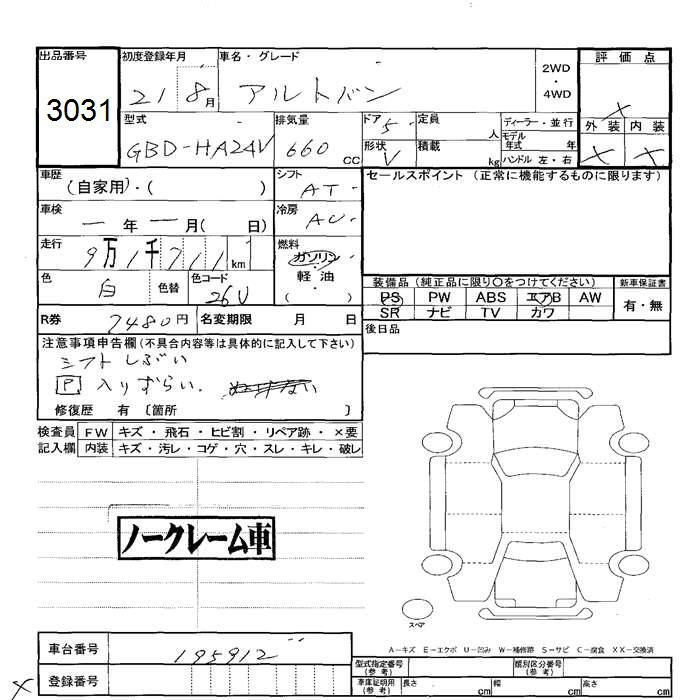 出品番号 初度登録年月 車名・グレード 評価点
3031 21 8月 アルトバン 2WD ・ 4WD ×
型式 排気量 ドア 5 定員 人 ディーラー・並行 外装 内装
GBD-HA24V 660 cc 形状 V 積載 kg モデル年式 年 ハンドル 左・右 × ×
車歴 (自家用)・( ) シフト AT セールスポイント (正常に機能するものに限ります)
車検 ー年ー月( 日) 冷房 AC
走行 9万1千711km 燃料 ガソリン 軽油 ( )
色 白 色替 色コード 26U 装備品(純正品に限り○をつけてください) 新車保証書
PS PW ABS エアB AW 有・無
SR ナビ TV カワ
R券 7480円 名変期限 月 日 後日品
注意事項申告欄(不具合内容等は具体的に記入して下さい)
シフトしぶい
P 入りずらい.
修復歴 有 〔箇所 〕
検査員 FW キズ・飛石・ヒビ割・リペア跡・×要
記入欄 内装 キズ・汚レ・コゲ・穴・スレ・キレ・破レ
ノークレーム車
スペア
A-キズ E-エクボ U-凹み W-補修跡 S-サビ C-腐食 XX-交換済
車台番号 195912
× 登録番号
型式指定番号(参考) 類別区分番号(参考)
車庫証明用(参考) 長さ cm 幅 cm 高さ cm